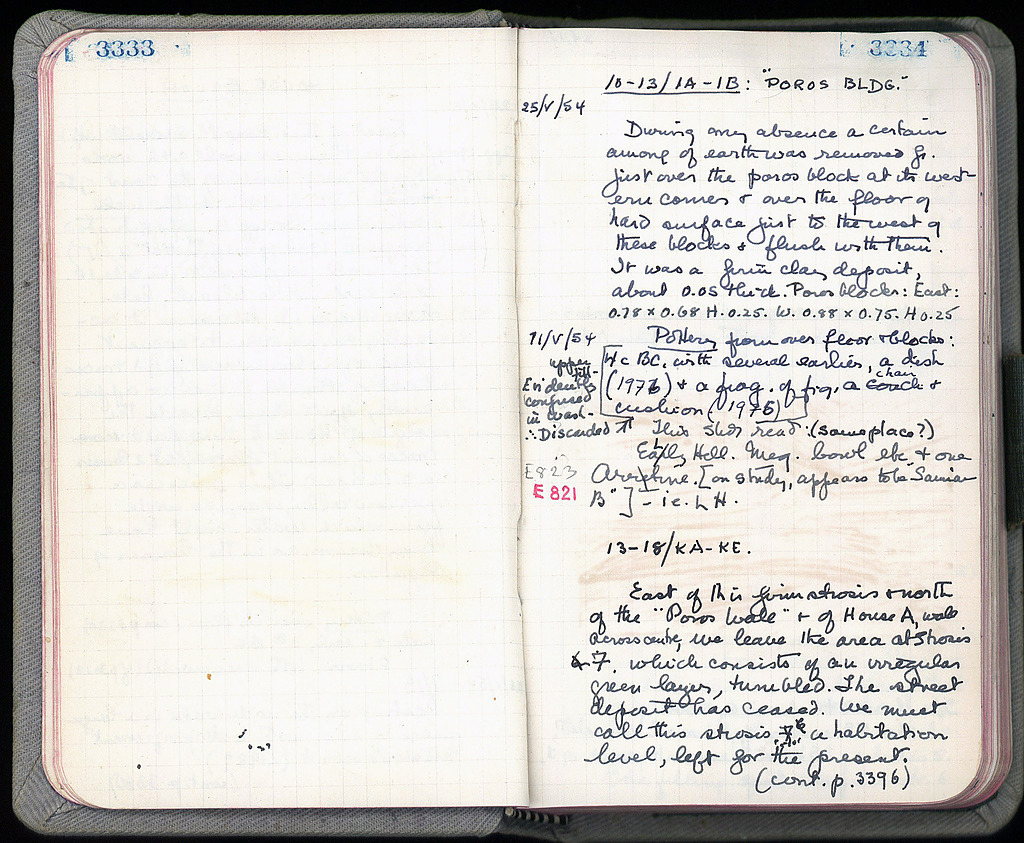 3333
3334
10-13/1A-1B: "POROS BLDG."
25/V/54
During my absence a certain
among of earth was removed fr.
just over the poros block at its west-
ern corner & over the floor of
hard surface just to the west of
these blocks & flush with them.
It was a firm clay deposit,
about 0.05 thick. Poros blocks: East:
0.78 x 0.68 H. 0.25. W. 0.88 x 0.75. H 0.25
11/V/54
Pottery from over floor & blocks:
upper fill-
Evidently
confused
in wash-
∴ Discarded
4 c BC. with several earlier, a dish
(1976) & a frag. of fig. a couch chair &
cushion (1975)
This shds read: (same place?)
Early Hell. Meg. bowl etc & one
E 823
Arretine. [on study, appears to be "Samian
E 821
B"] - i.e. L H.
13-18/KA-KE.
East of this firm strosis & north
of the "Poros Wall" & of House A, wall
across centre, we leave the area at Strosis
7. which consists of an irregular
green layer, tumbled. The street
deposit has ceased. We must
call this strosis a habitation
level, left for the present.
(cont. p. 3396)